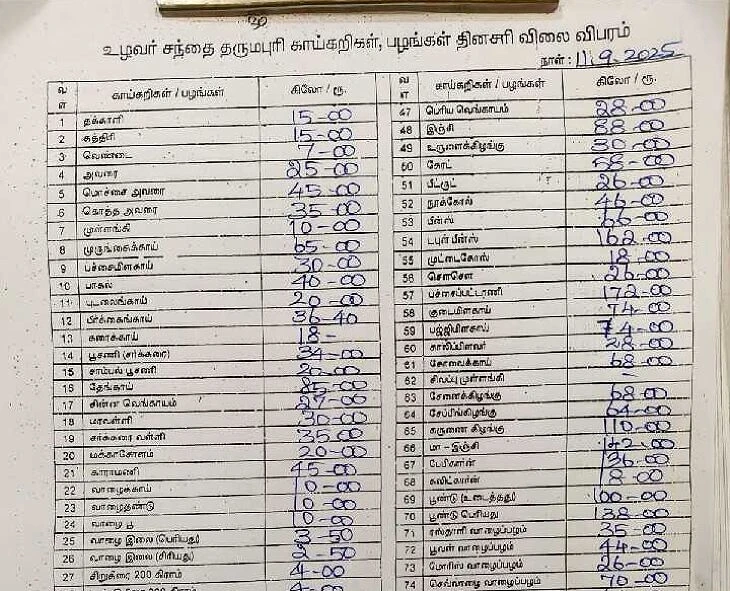 உழவர் சந்தை தருமபுரி காய்கறிகள், பழங்கள் தினசரி விலை விபரம்
நாள் : 11.9.2025
வ எ காய்கறிகள் / பழங்கள் கிலோ / ரூ.
1 தக்காளி 15-00
2 கத்திரி 15-00
3 வெண்டை 7-00
4 அவரை 25-00
5 மொச்சை அவரை 45-00
6 கொத்த அவரை 35-00
7 முள்ளங்கி 10-00
8 முருங்கைக்காய் 65-00
9 பச்சைமிளகாய் 30-00
10 பாகல் 40-00
11 புடலைங்காய் 20-00
12 பீர்க்கைங்காய் 36-40
13 சுரைக்காய் 18-
14 பூசணி (சர்க்கரை) 34-00
15 சாம்பல் பூசணி 20-00
16 தேங்காய்
17 சின்ன வெங்காயம் 27-00
18 மரவள்ளி 30-00
19 சர்க்கரை வள்ளி 35-00
20 மக்காசோளம் 20-00
21 காராமணி 45-00
22 வாழைக்காய் 10-00
23 வாழைதண்டு 10-00
24 வாழை பூ 10-00
25 வாழை இலை (பெரியது) 3-50
26 வாழை இலை (சிறியது) 2-50
27 சிறுகீரை 200 கிராம் 4-00
வ எ காய்கறிகள் / பழங்கள் கிலோ / ரூ.
47 பெரிய வெங்காயம் 28-00
48 இஞ்சி 88-00
49 உருளைக்கிழங்கு 30-00
50 கேரட் 58-00
51 பீட்ரூட் 26-00
52 நூக்கோல் 46-00
53 பீன்ஸ் 66-00
54 டபுள் பீன்ஸ் 162-00
55 முட்டைகோஸ் 18-00
56 சௌசௌ 26-00
57 பச்சைப்பட்டாணி 172-00
58 குடைமிளகாய் 74-00
59 பஜ்ஜிமிளகாய் 74-00
60 காலிப்பிளவர் 28-00
61 கோவைக்காய் 68-00
62 சிவப்பு முள்ளங்கி –
63 சேனைக்கிழங்கு 68-00
64 சேப்பங்கிழங்கு 64-00
65 கருணை கிழங்கு 110-00
66 மா – இஞ்சி 142-00
67 பேபிகார்ன் 136-00
68 சுவிட்கார்ன் 18-00
69 பூண்டு (உடைத்தது) 100-00
70 பூண்டு பெரியது 138-00
71 ரஸ்தாளி வாழைப்பழம் 35-00
72 பூவன் வாழைப்பழம் 44-00
73 மோரிஸ் வாழைப்பழம் 26-00
74 செவ்வாழை வாழைப்பழம் 70-00